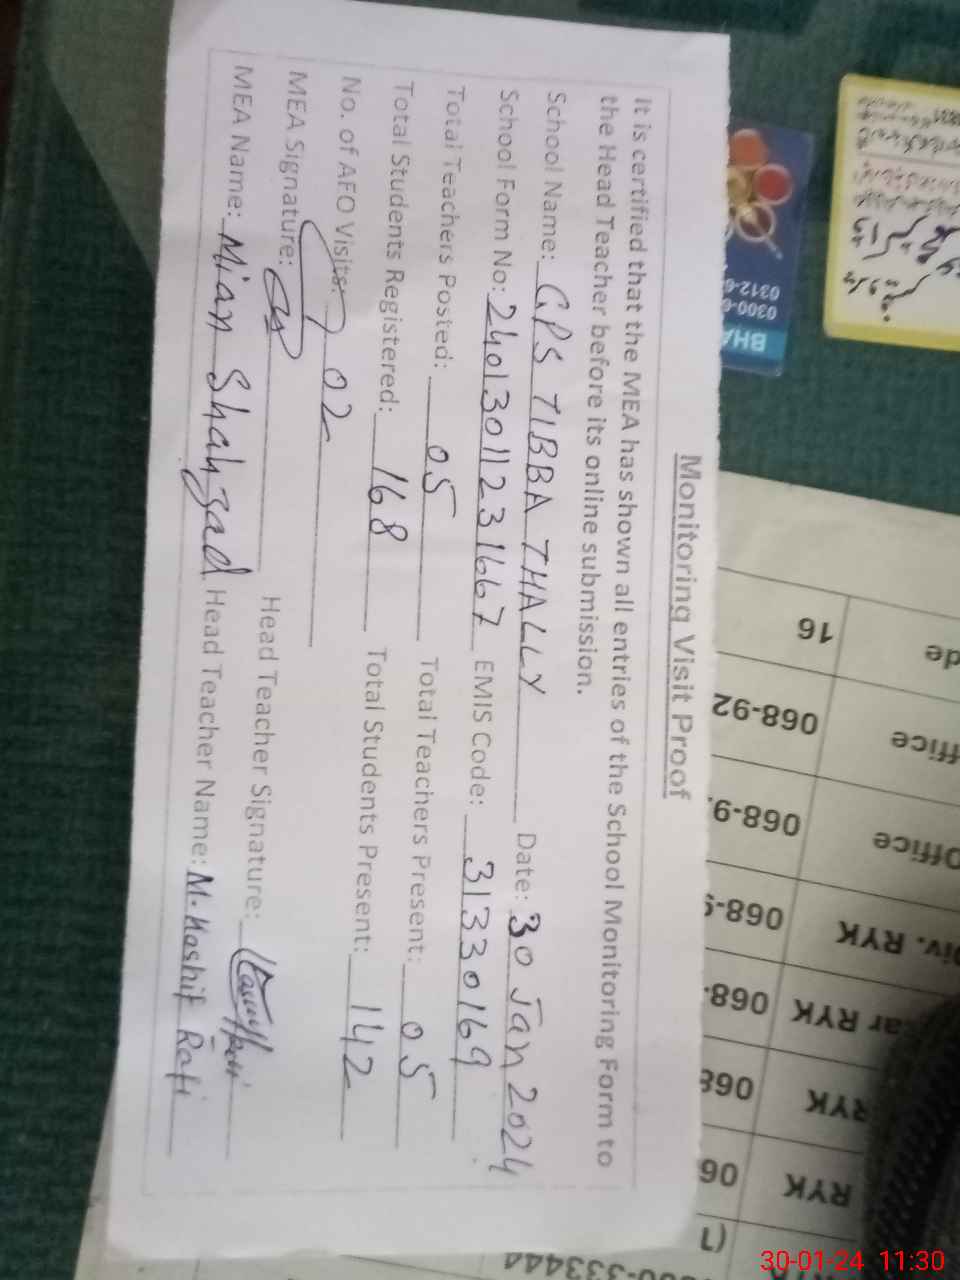 Monitoring Visit Proof
It is certified that the MEA has shown all entries of the School Monitoring Form to
the Head Teacher before its online submission.
School Name: GPS TIBBA THALLY Date: 30 Jan 2024
School Form No: 2401301123 1667 EMIS Code: 31330169
Total Teachers Posted: 05 Total Teachers Present: 05
Total Students Registered: 168 Total Students Present: 142
No. of AEO Visits: 02
MEA Signature: Head Teacher Signature:
MEA Name: Mian Shahzad Head Teacher Name: M. Kashif Rafi
BHA
0300-6
0312-6
de 16
ffice 068-92
Office 068-9
Div. RYK 068-9
ar RYK 068-
RYK 068
RYK 06
33444
30-01-24 11:30